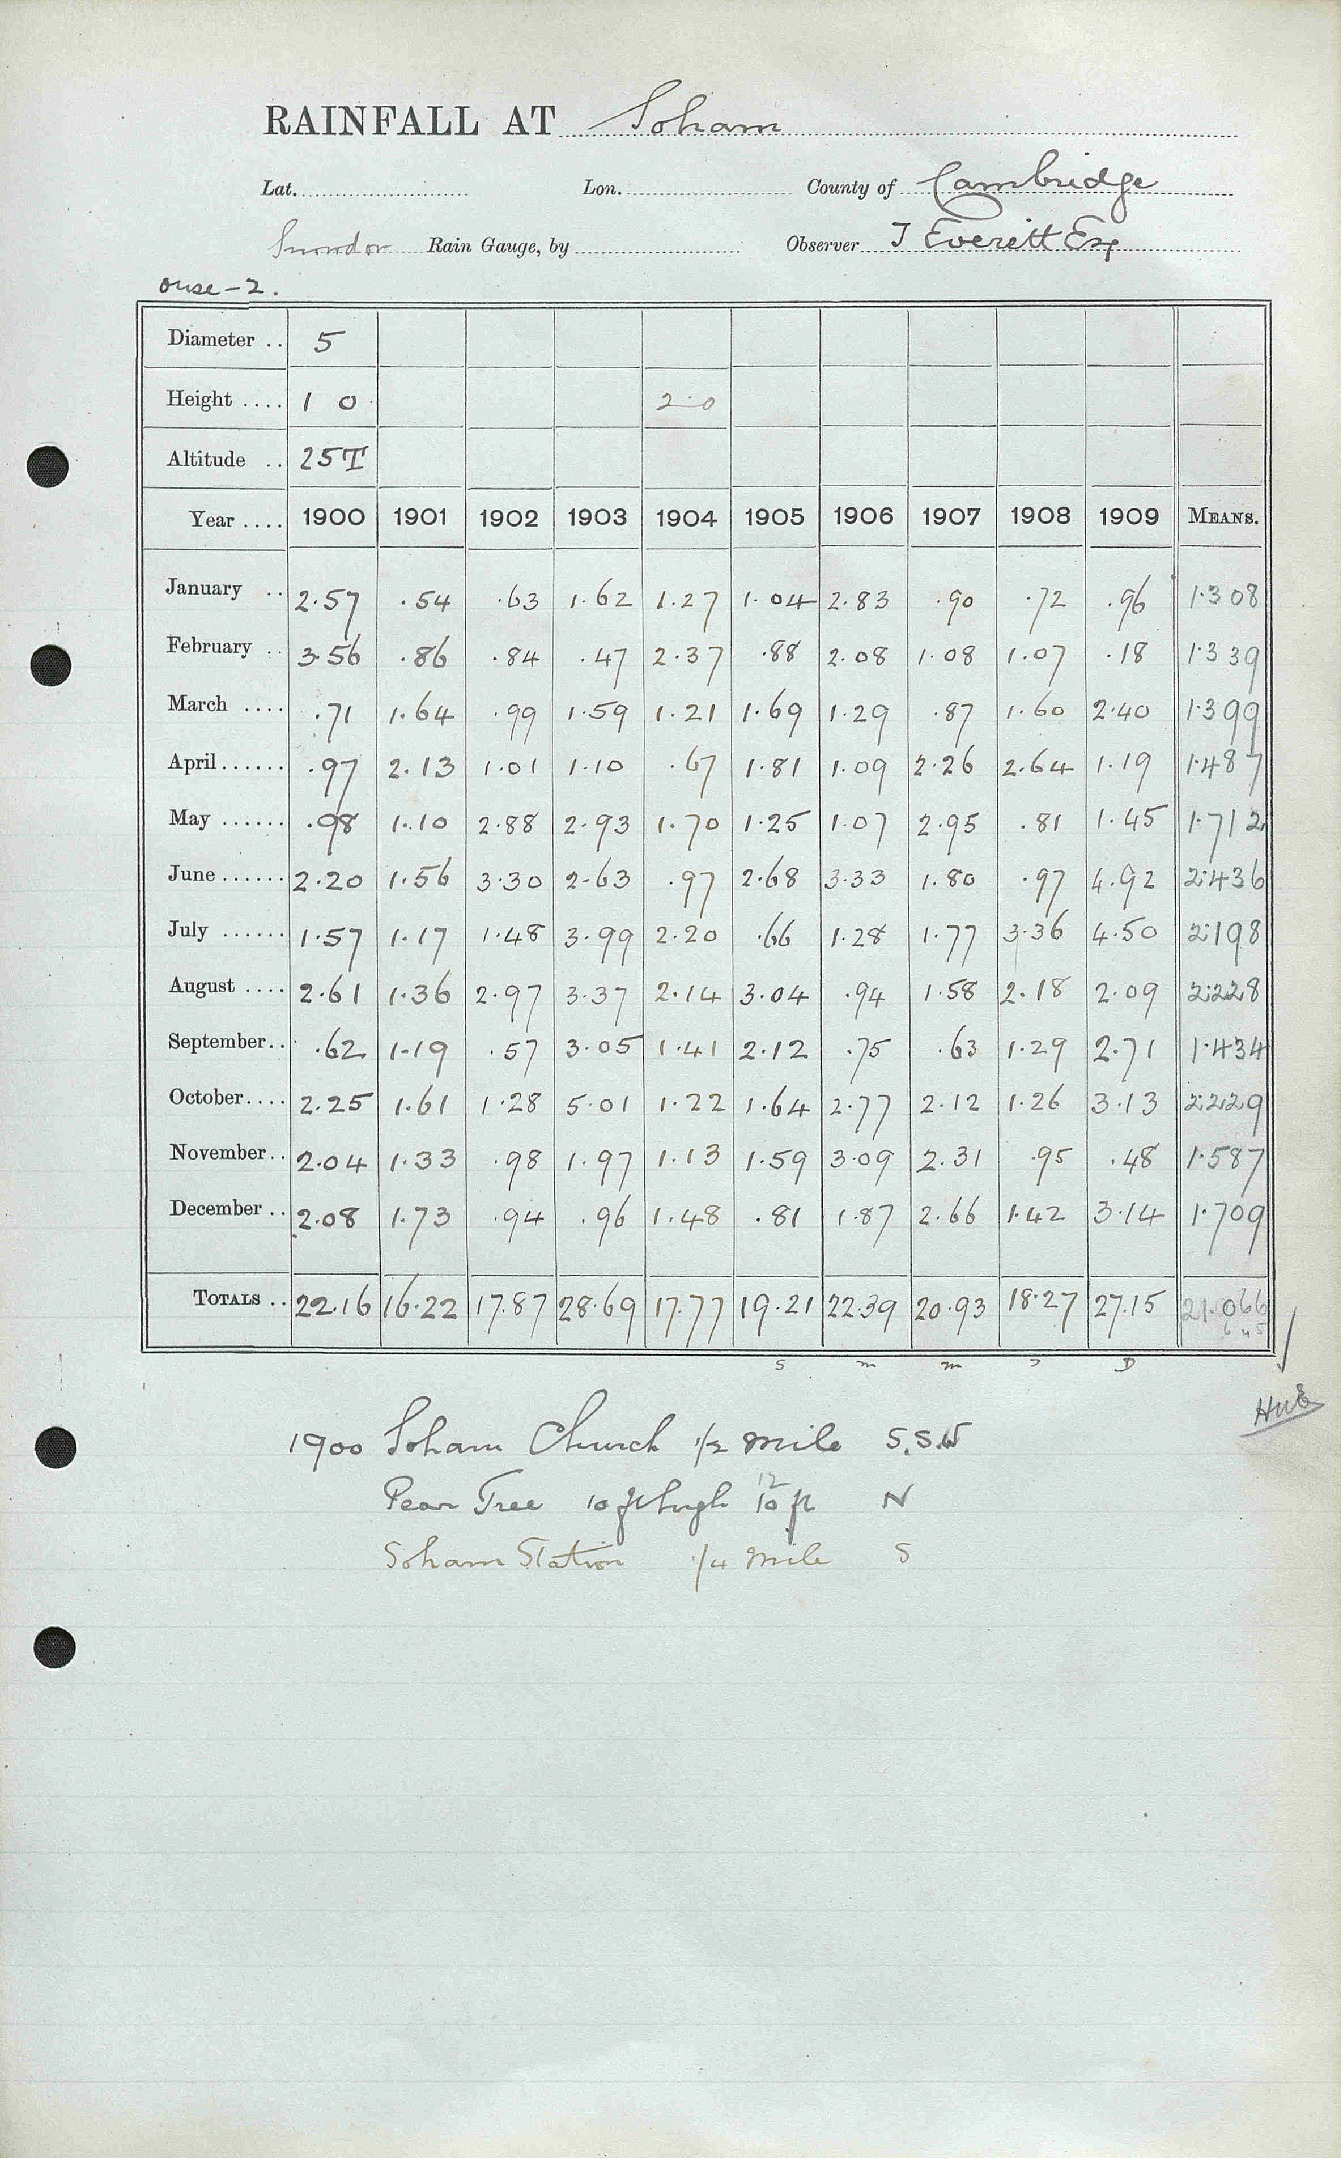 RAINFALL AT Soham
Lat. Lon. County of Cambridge
Snowdon Rain Gauge, by Observer J Everett Esq
Ouse-2.
Diameter .. 5
Height .... 1 0 2.0
Altitude .. 25T
Year .... 1900 1901 1902 1903 1904 1905 1906 1907 1908 1909 MEANS.
January .. 2.57 .54 .63 1.62 1.27 1.04 2.83 .90 .72 .96 1.308
February .. 3.56 .86 .84 .47 2.37 .88 2.08 1.08 1.07 .18 1.339
March .... .71 1.64 .99 1.59 1.21 1.69 1.29 .87 1.60 2.40 1.399
April...... .97 2.13 1.01 1.10 .67 1.81 1.09 2.26 2.64 1.19 1.487
May ...... .98 1.10 2.88 2.93 1.70 1.25 1.07 2.95 .81 1.45 1.712
June ...... 2.20 1.56 3.30 2.63 .97 2.68 3.33 1.80 .97 4.92 2.436
July ...... 1.57 1.17 1.48 3.99 2.20 .66 1.28 1.77 3.36 4.50 2.198
August .... 2.61 1.36 2.97 3.37 2.14 3.04 .94 1.58 2.18 2.09 2.228
September.. .62 1.19 .57 3.05 1.41 2.12 .75 .63 1.29 2.71 1.434
October.... 2.25 1.61 1.28 5.01 1.22 1.64 2.77 2.12 1.26 3.13 2.229
November.. 2.04 1.33 .98 1.97 1.13 1.59 3.09 2.31 .95 .48 1.587
December .. 2.08 1.73 .94 .96 1.48 .81 1.87 2.66 1.42 3.14 1.709
TOTALS .. 22.16 16.22 17.87 28.69 17.77 19.21 22.39 20.93 18.27 27.15 21.066
S m m J D
1900 Soham Church 1/2 mile S.S.W
Pear Tree 10 ft high 12 10 ft N
Soham Station 1/4 mile S